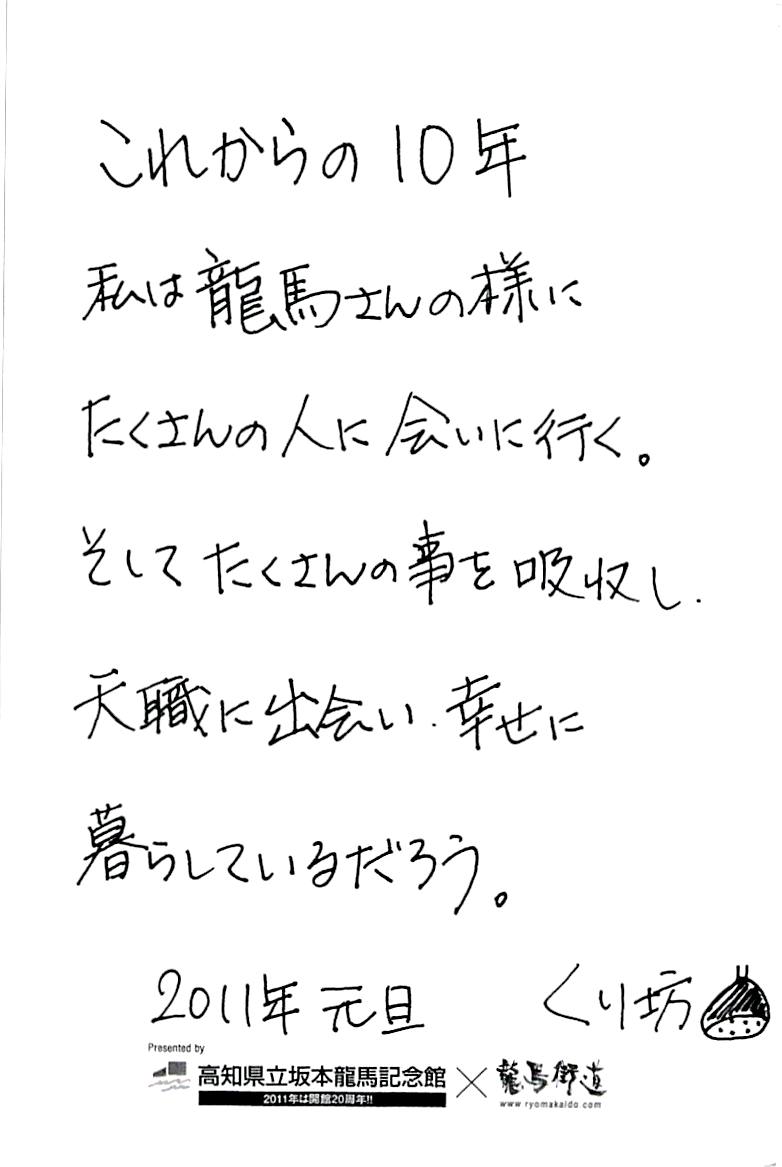 これからの10年
私は龍馬さんの様に
たくさんの人に会いに行く。
そしてたくさんの事を吸収し、
天職に出会い、幸せに
暮らしているだろう。
2011年 元旦 くり坊
Presented by
高知県立坂本龍馬記念館 × 龍馬街道
2011年は開館20周年!! www.ryomakaido.com